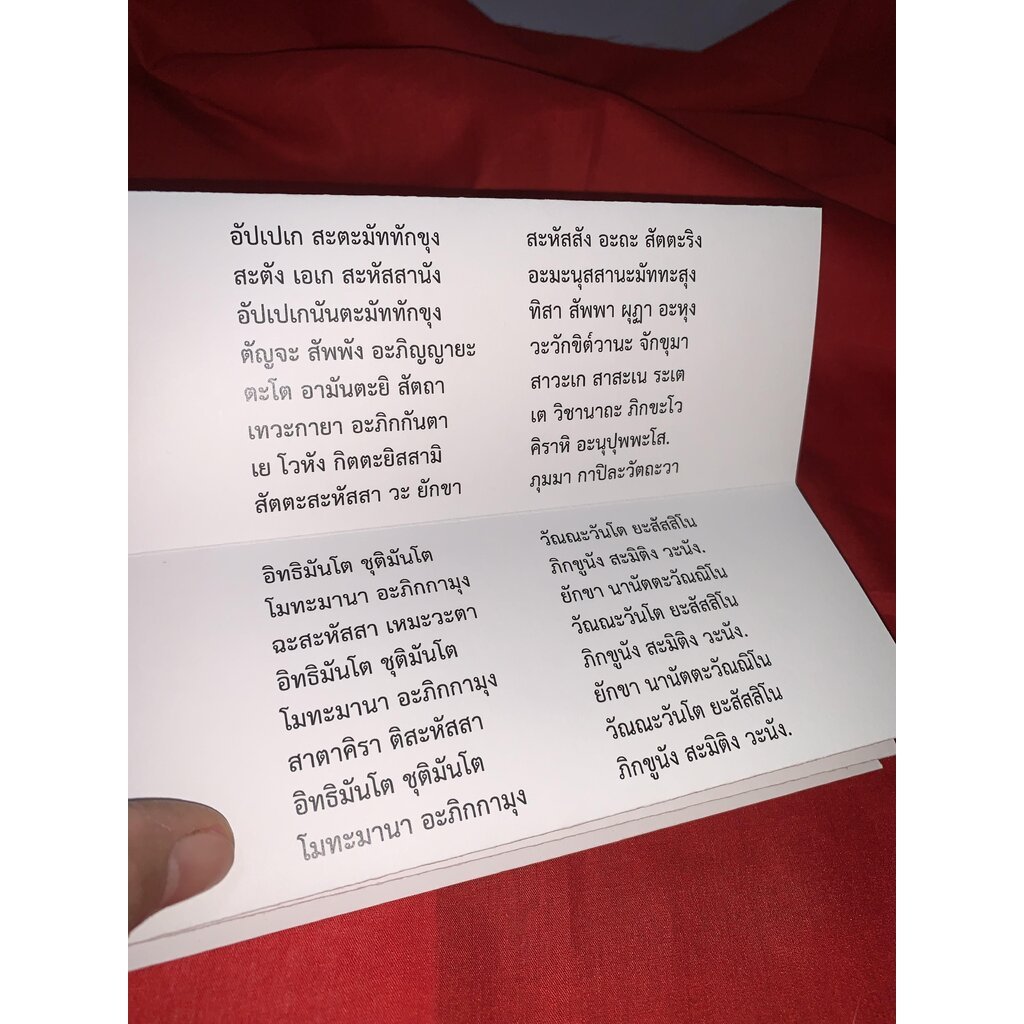 อัปเปเก สะตะมัททักขุง สะหัสสัง อะถะ สัตตะริง
สะตัง เอเก สะหัสสานัง อะมะนุสสานะมัททะสุง
อัปเปเกนันตะมัททักขุง ทิสา สัพพา ผุฏา อะหุง
ตัญจะ สัพพัง อะภิญญายะ วะวักขิต์วานะ จักขุมา
ตะโต อามันตะยิ สัตถา สาวะเก สาสะเน ระเต
เทวะกายา อะภิกกันตา เต วิชานาถะ ภิกขะโว
เย โวหัง กิตตะยิสสามิ คิราหิ อะนุปุพพะโส.
สัตตะสะหัสสา วะ ยักขา ภุมมา กาปิละวัตถะวา
อิทธิมันโต ชุติมันโต วัณณะวันโต ยะสัสสิโน
โมทะมานา อะภิกกามุง ภิกขูนัง สะมิติง วะนัง.
ฉะสะหัสสา เหมะวะตา ยักขา นานัตตะวัณณิโน
อิทธิมันโต ชุติมันโต วัณณะวันโต ยะสัสสิโน
โมทะมานา อะภิกกามุง ภิกขูนัง สะมิติง วะนัง.
สาตาคิรา ติสะหัสสา ยักขา นานัตตะวัณณิโน
อิทธิมันโต ชุติมันโต วัณณะวันโต ยะสัสสิโน
โมทะมานา อะภิกกามุง ภิกขูนัง สะมิติง วะนัง.